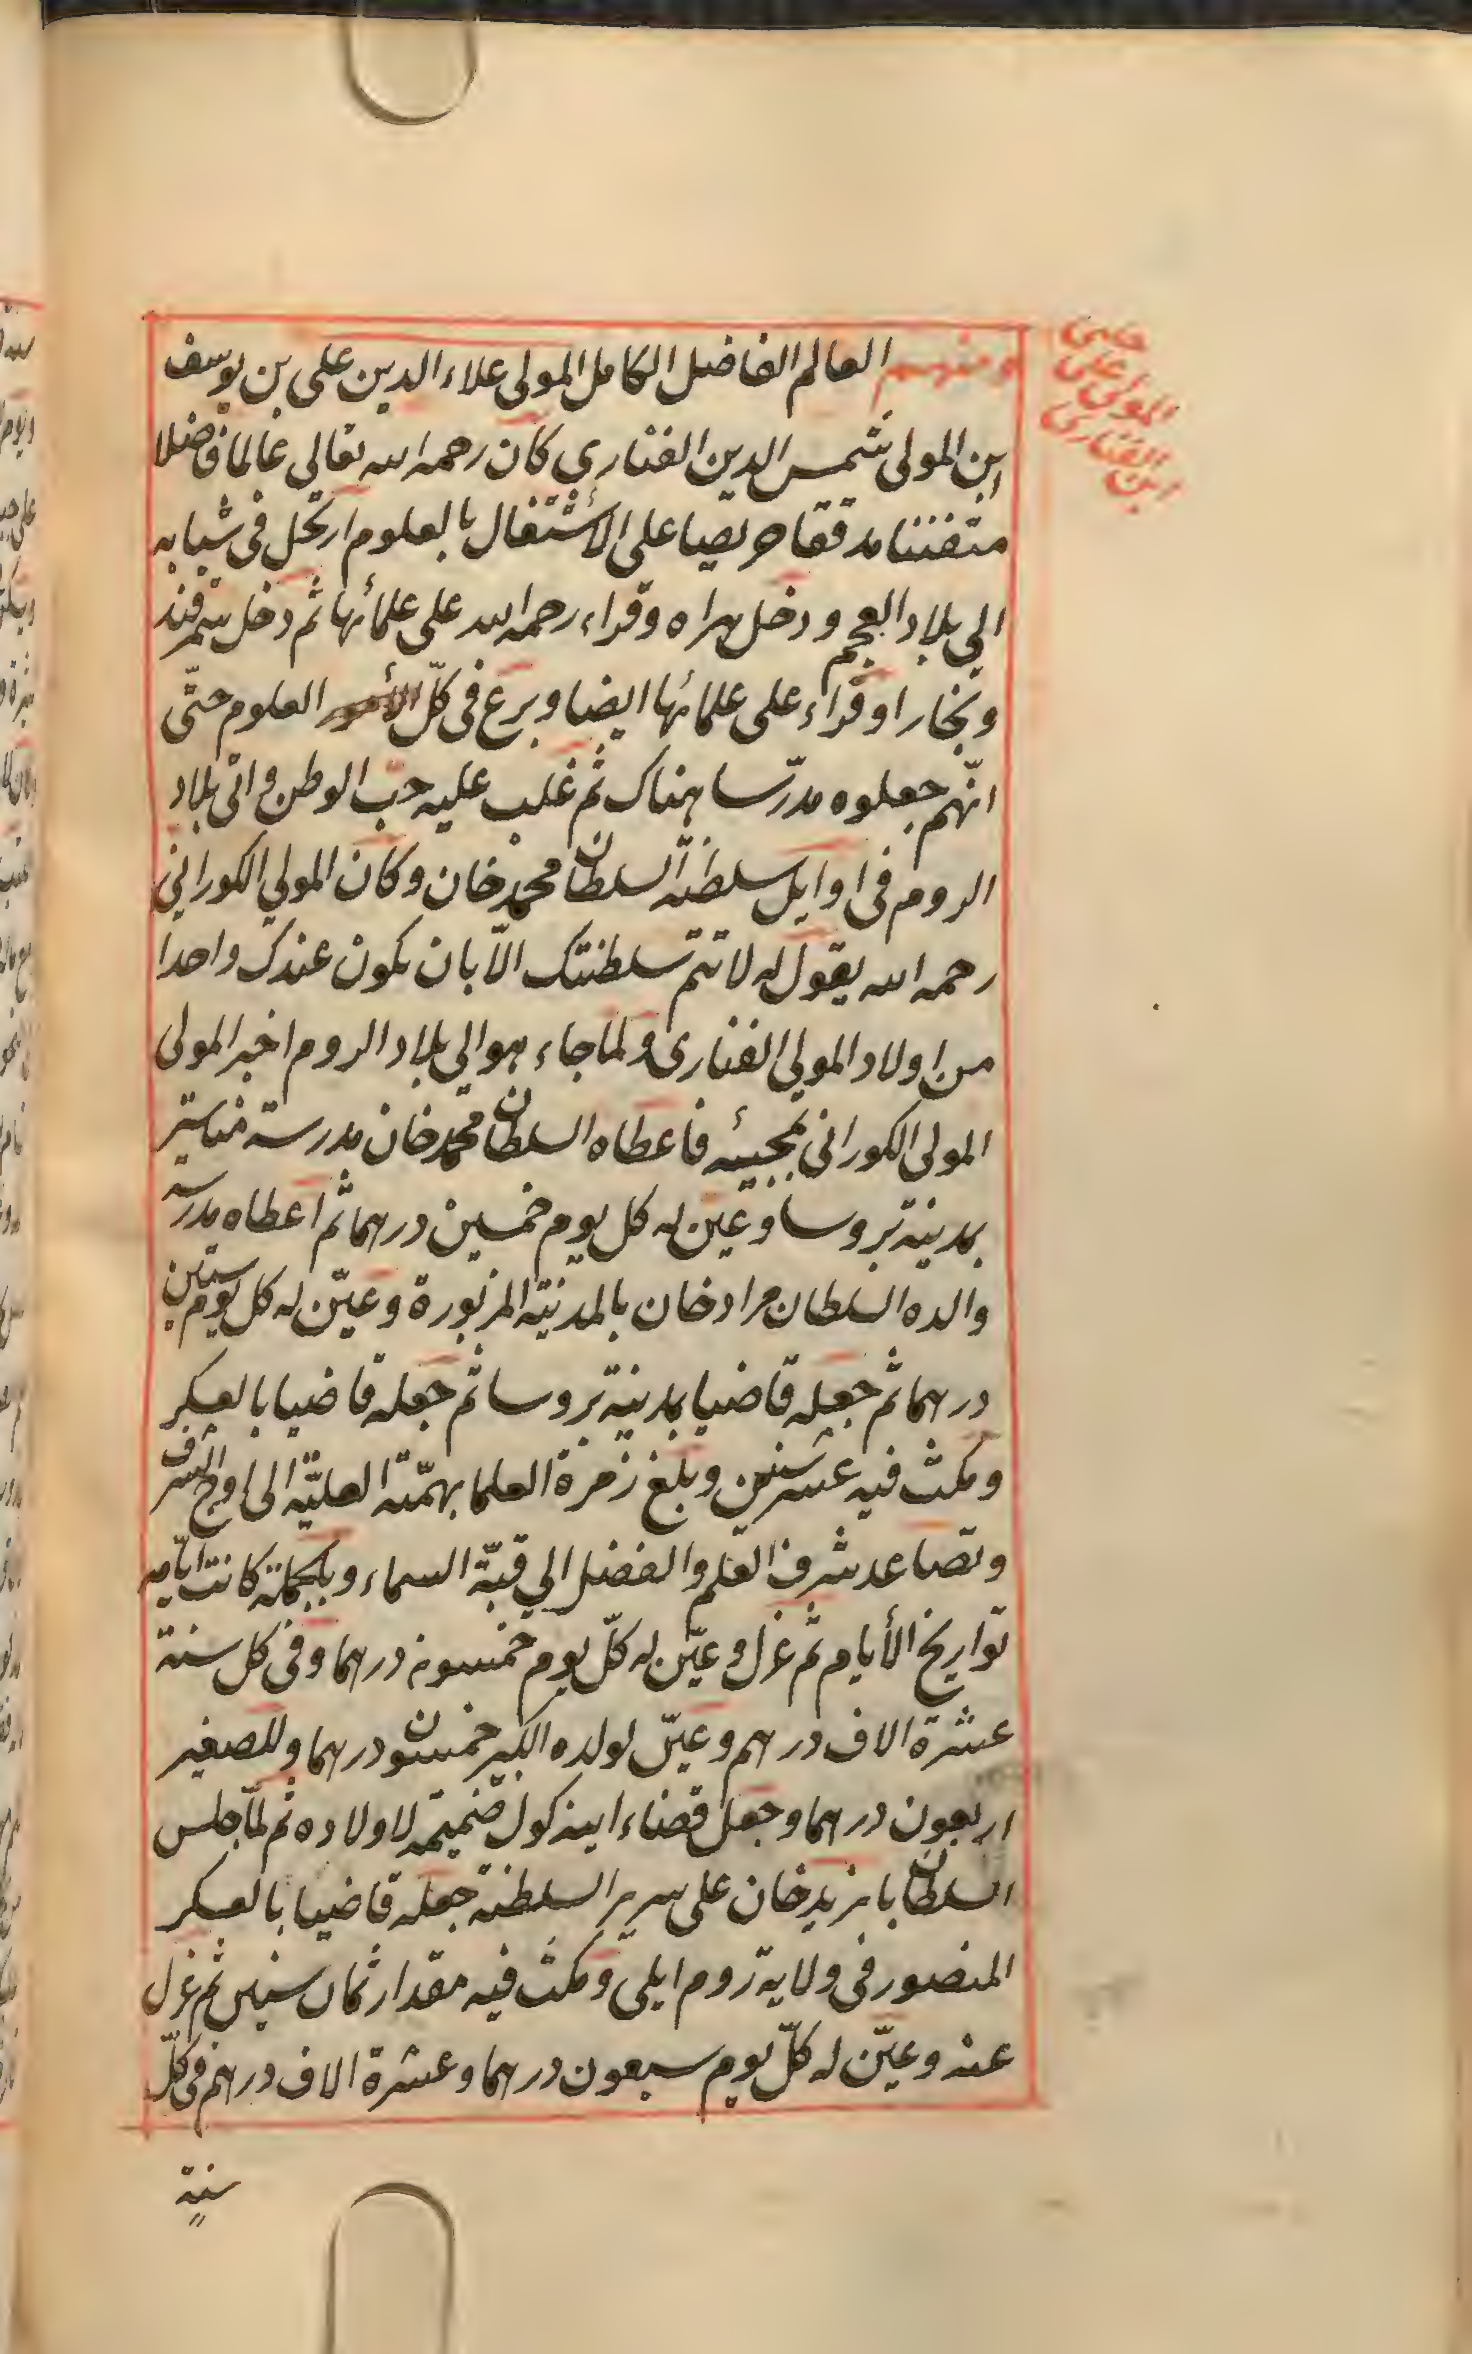 ومنهم العالم الفاضل الكامل المولى علاء الدين على بن يوسف
ابن المولى شمس الدين الفنارى كان رحمه الله تعالى عالما فاضلا
متفننا مدققا حريصا على الأشتغال بالعلوم ارتحل فى شبابه
الى بلاد العجم ودخل هراه وقراء رحمه الله على علمائها ثم دخل سمرقند
وبخارا وقراء على علمائها ايضا وبرع فى كلّ العلوم حتّى
انّهم جعلوه مدرّسا هناك ثم غلب عليه حبّ الوطن واتى بلاد
الروم فى اوايل سلطنة السلطان محمد خان وكان المولى الكورانى
رحمه الله يقول له لا تتم سلطنتك الاّ بان يكون عندك واحدا
من اولاد المولى الفنارى ولما جاء هو الى بلاد الروم اخبر المولى
المولى الكورانى بمجيئه فاعطاه السلطان محمد خان مدرسة مناستر
بمدينة بروسا وعين له كل يوم خمسين درهما ثم اعطاه مدرسة
والده السلطان مراد خان بالمدينة المزبورة وعيّن له كل يوم ستين
درهما ثم جعله قاضيا بمدينة بروسا ثم جعله قاضيا بالعسكر
ومكث فيه عشر سنين وبلغ زمرة العلما بهمّته العليّة الى اوج الشرف
وتصاعد شرف العلم والفضل الى قبّة السماء وبالجملة كانت ايامه
تواريخ الأيام ثم عزل وعيّن له كلّ يوم خمسون درهما وفى كل سنة
عشرة الاف درهم وعيّن لولده الكبير خمسون درهما وللصغير
اربعون درهما وجعل قضاء اينه كول ضميمة لاولاده ثم لمّا جلس
السلطان بايزيد خان على سرير السلطنة جعله قاضيا بالعسكر
المنصور فى ولاية روم ايلى ومكث فيه مقدار ثمان سنين ثم عزل
عنه وعيّن له كلّ يوم سبعون درهما وعشرة الاف درهم فى كلّ
سنة
المولى على
الفنارى